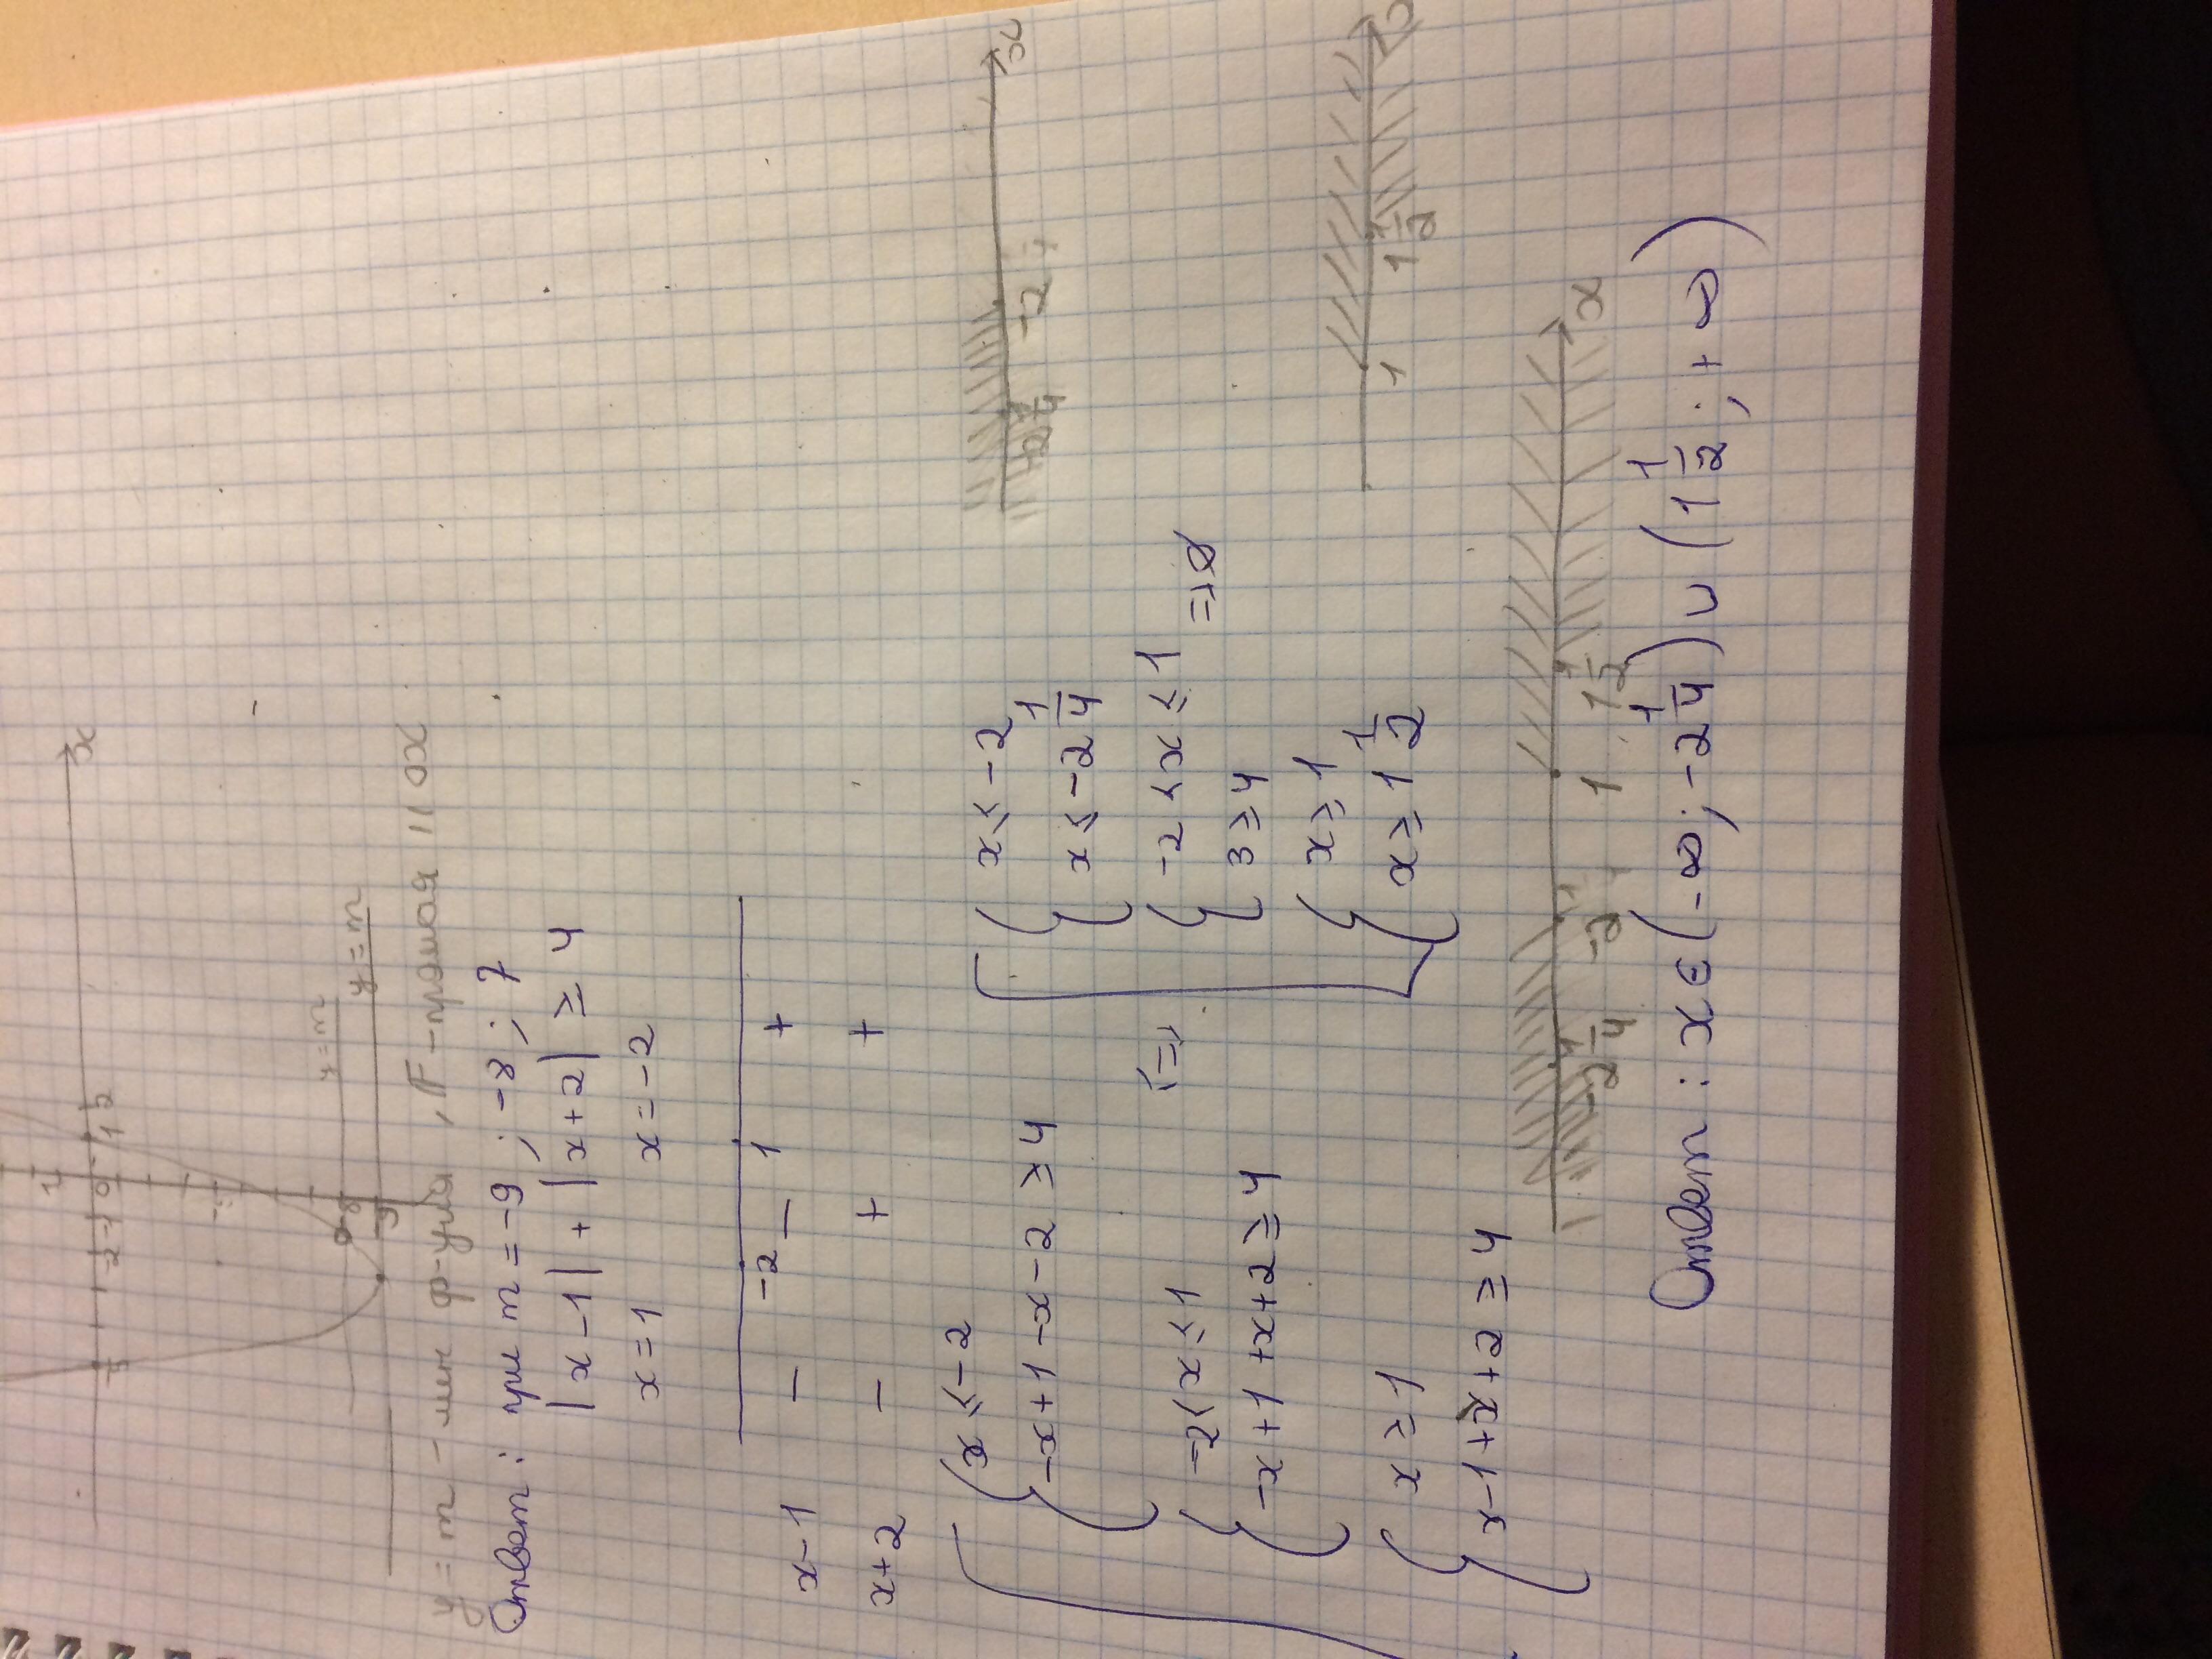 x
-2 -1 0 1 2
-8
-9
y=m
y=m
y = m - лин ф-ция, Г-прямая || ох
Ответ: при m = -9; -8; 7
|x-1| + |x+2| ≥ 4
x=1 x=-2
-2 1
x-1 - - +
x+2 - + +
x ≤ -2
-x+1-x-2 ≥ 4
-2<x≤1
-x+1+x+2≥4
x≥1
x-1+x+2≥4
<=>
x≤-2
x≤-2 1/4
-2<x≤1
3≥4
=>∅
x≥1
x≥1 1/2
-2 1/4 -2 x
1 1 1/2
-2 1/4 -2 1 1 1/2 x
Ответ: x∈(-∞; -2 1/4)∪(1 1/2; +∞)